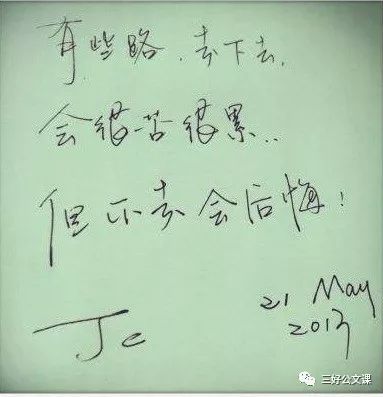 有些路.走下去.
会很苦很累..
但不走会后悔!
21 May
2013
Jc
三好公文课